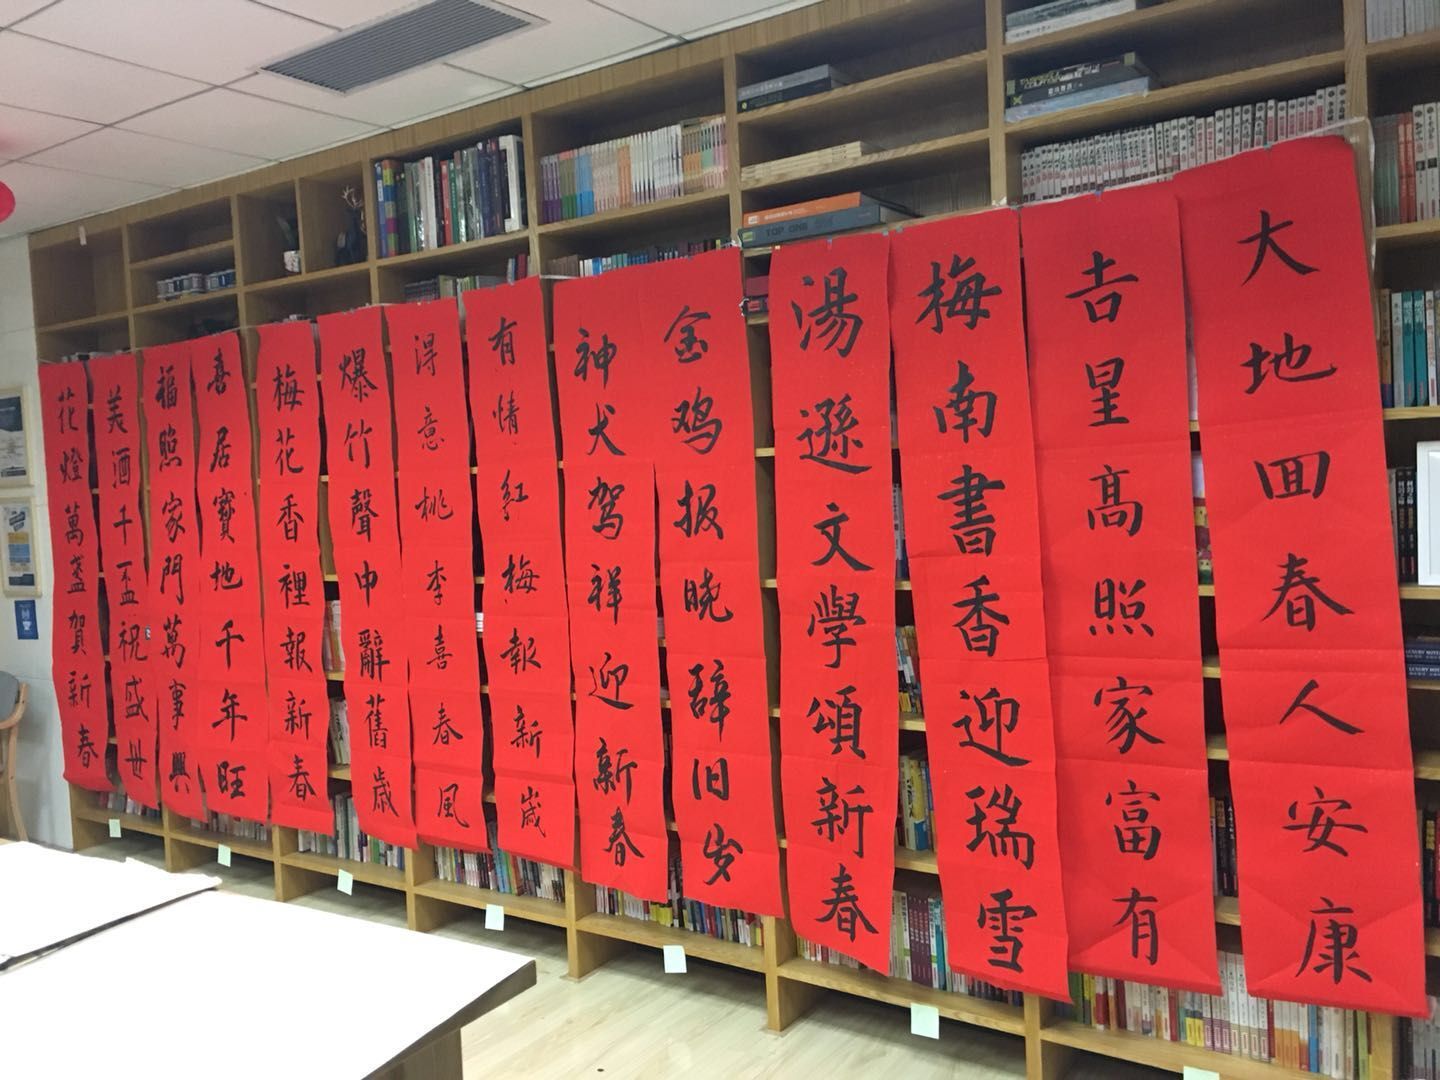 大地回春人安康
吉星高照家富有
梅南書香迎瑞雪
湯遜文學頌新春
金鸡报晓辞旧岁
神犬驾祥迎新春
有情红梅報新歲
得意桃李喜春風
爆竹聲中辭舊歲
梅花香裡報新春
喜居寶地千年旺
福照家門萬事興
美酒千盃祝盛世
花燈萬盞賀新春
TOP ONE